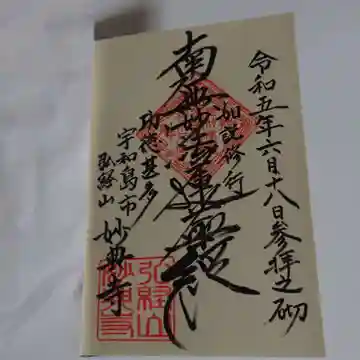 令和五年六月十八日参拝之砌
如説修行
南無妙法蓮華経
功徳甚多
宇和島市
弘経山
妙典寺